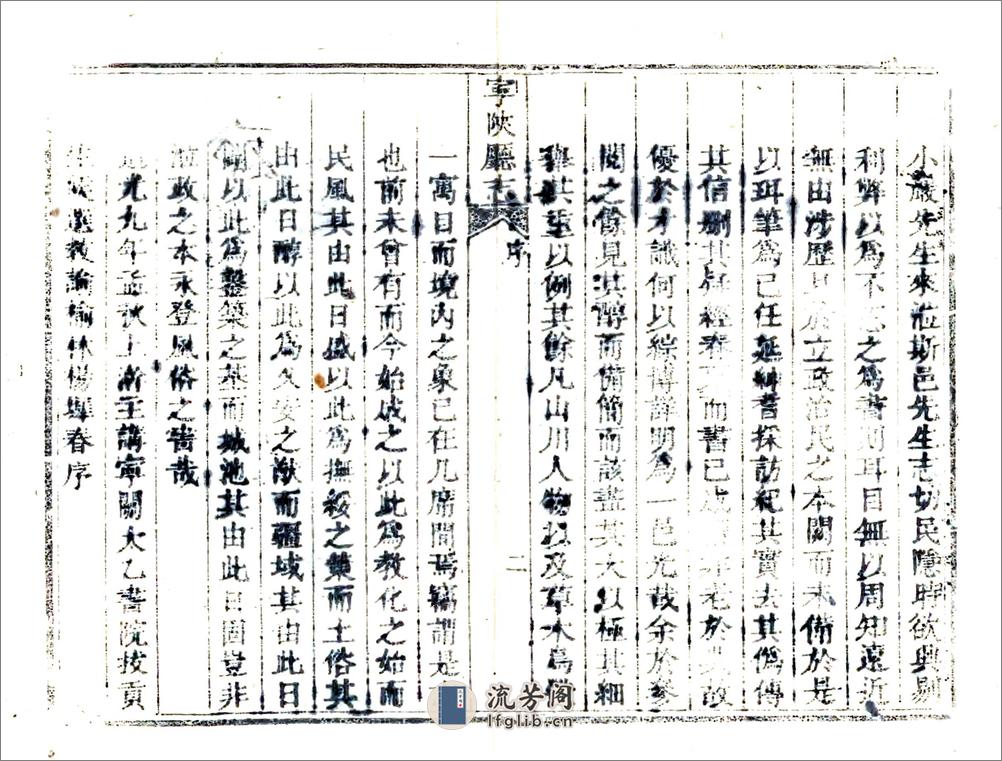 小巖先生來涖斯邑先生志切民隱時欲興剔
利弊以為不之為書則耳目無以周知遠近
無由涉歷見於立政治民之本闕而未備於是
以珥筆爲己任無縛耆探訪紀其實去其僞傳
其信刪其疑經春而書已成老於故
優於才識何以綜博詳明爲一邑光哉余於參
閱之餘見淇醇而備簡而該盡其大以極其細
舉其重以例其餘凡山川人物以及草木鳥
寧陝廳志
序
二
一寓目而境内之象已在几席間焉竊謂是
也前未曾有而今始成之以此爲教化之始而
民風其由此日盛以此爲撫綏之策而土俗其
由此日醇以此爲久安之猷而疆域其由此日
以此爲鑿築之基而城池其由此日固豈非
涖政之本永登風俗之書哉
光九年孟秋上浙主講寧關太乙書院拔貢
教諭榆林楊春序
流芳阁
lfglib.cn